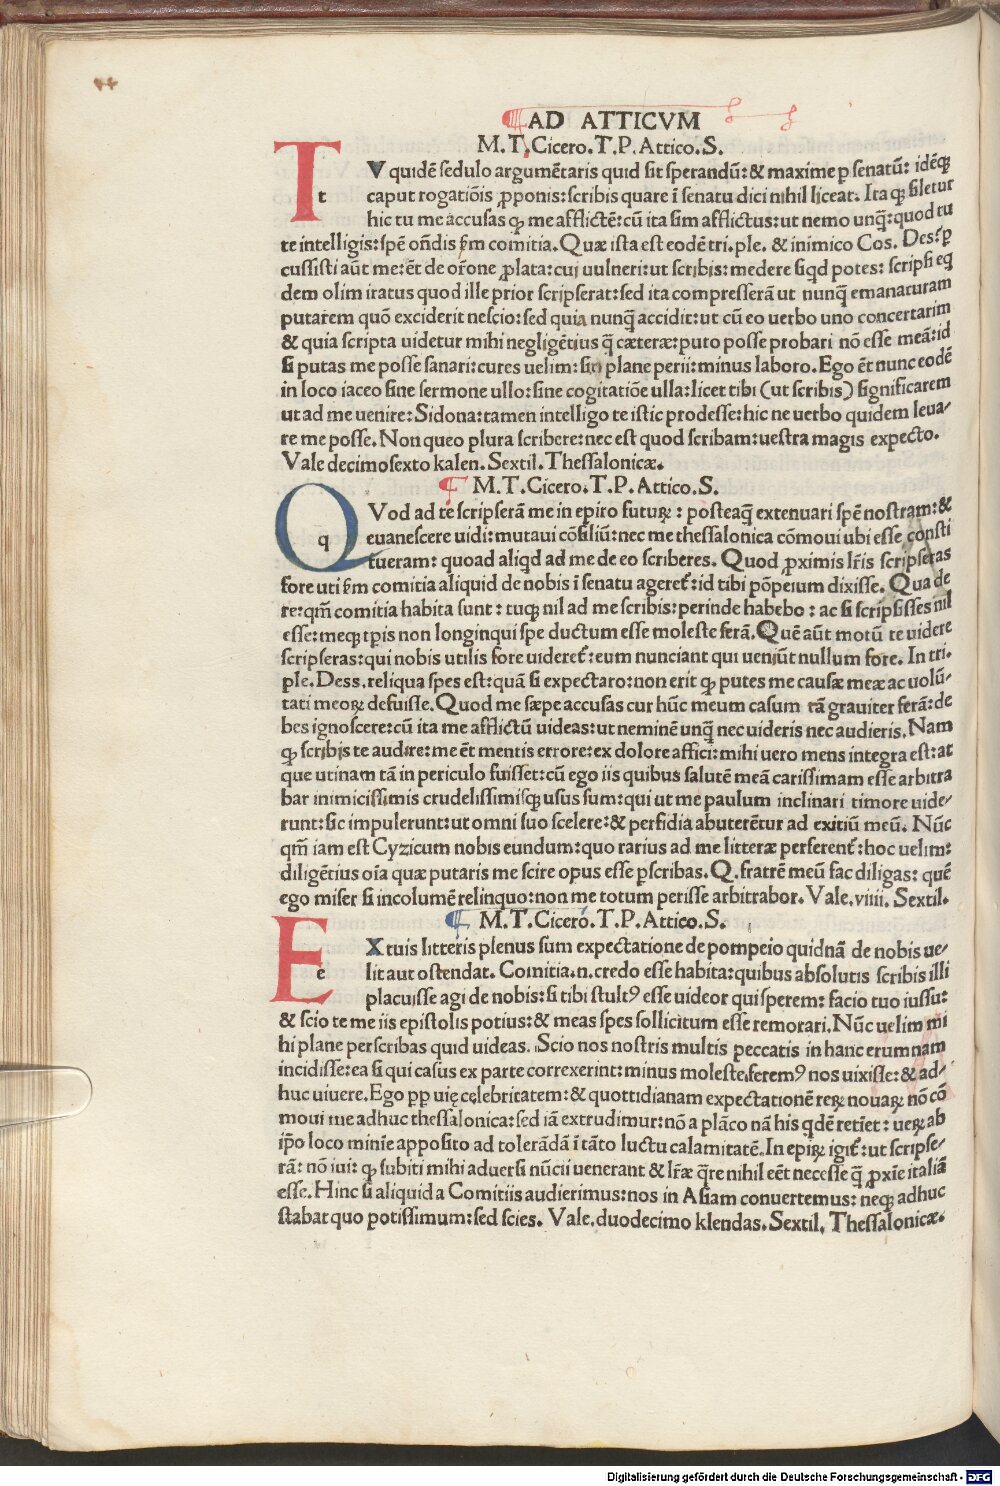 AD ATTICVM
M.T.Cicero.T.P.Attico.S.
TV quidē sedulo argumētaris quid sit sperandū: & maxime p senatū: idēqꝫ
caput rogatiōis ꝓponis: scribis quare ī senatu dici nihil liceat. Ita qꝫ siletur
hic tu me accusas qꝫ me afflictē: cū ita sim afflictus: ut nemo unqꝫ: quod tu
te intelligis: spē oñdis ẜm comitia. Quæ ista est eodē tri. ple. & inimico Cos. Des: ꝑ
cussisti aūt me: ēt de or̄one ꝓlata: cui uulneri: ut scribis: medere siqd potes: scripsi eq
dem olim iratus quod ille prior scripserat: sed ita compresserā ut nunq̄ emanaturam
putarem quō exciderit nescio: sed quia nunq̄ accidit: ut cū eo uerbo uno concertarim
& quia scripta uidetur mihi negligētius q̄ cæteræ: puto posse probari nō esse meā: id
si putas me posse sanari: cures uelim: sin plane perii: minus laboro. Ego ēt nunc eodē
in loco iaceo sine sermone ullo: sine cogitatiōe ulla: licet tibi (ut scribis) significarem
ut ad me uenire: Sidona: tamen intelligo te istic prodesse: hic ne uerbo quidem leua/
re me posse. Non queo plura scribere: nec est quod scribam: uestra magis expecto.
Vale decimosexto kalen. Sextil. Thessalonicæ.
M.T.Cicero.T.P.Attico.S.
QVod ad te scripserā me in epiro futurꝝ: posteaq̄ extenuari spē nostram: &
euanescere uidi: mutaui cōsiliū: nec me thessalonica cōmoui ubi esse consti
tueram: quoad aliqd ad me de eo scriberes. Quod ꝓximis lr̄is scripseras
fore uti ẜm comitia aliquid de nobis ī senatu ageret̃: id tibi pōpeium dixisse. Qua de
re: qm̄ comitia habita sunt: tuqꝫ nil ad me scribis: perinde habebo: ac si scripsisses nil
esse: meqꝫ tp̄is non longinqui spe ductum esse moleste ferā. Quē aūt motū te uidere
scripseras: qui nobis utilis fore uideret̃: eum nunciant qui ueniūt nullum fore. In tri.
ple. Dess. reliqua spes est: quā si expectaro: non erit qꝫ putes me causæ meæ ac uolū-
tati meoꝝ defuisse. Quod me sæpe accusas cur hūc meum casum tā grauiter ferā: de
bes ignoscere: cū ita me afflictū uideas: ut neminē unq̄ nec uideris nec audieris. Nam
qꝫ scribis te audire: me ēt mentis errore: ex dolore affici: mihi uero mens integra est: at
que utinam tā in periculo fuisset: cū ego iis quibus salutē meā carissimam esse arbitra
bar inimicissimis crudelissimisqꝫ usus sum: qui ut me paulum inclinari timore uide/
runt: sic impulerunt: ut omni suo scelere: & perfidia abuterētur ad exitiū meū. Nūc
qm̄ iam est Cyzicum nobis eundum: quo rarius ad me litteræ perferent̃: hoc uelim:
diligētius oīa quæ putaris me scire opus esse pscribas. Q. fratrē meū fac diligas: quē
ego miser si incolumē relinquo: non me totum perisse arbitrabor. Vale. viiii. Sextil.
M.T.Cicero.T.P.Attico.S.
EX tuis litteris plenus sum expectatione de pompeio quidnā de nobis ue/
lit aut ostendat. Comitia. n. credo esse habita: quibus absolutis scribis illi
placuisse agi de nobis: si tibi stultꝰ esse uideor qui sperem: facio tuo iussu:
& scio te me iis epistolis potius: & meas spes sollicitum esse remorari. Nūc uelim mi
hi plane perscribas quid uideas. Scio nos nostris multis peccatis in hanc erumnam
incidisse: ea si qui casus ex parte correxerint: minus moleste feremꝰ nos uixisse: & ad/
huc uiuere. Ego pp uię celebritatem: & quottidianam expectationē reꝝ nouaꝝ nō cō
moui me adhuc thessalonica: sed iā extrudimur: nō a plāco nā his qdē retiet: ueꝝ ab
ip̄o loco minīe apposito ad tolerādā ī tāto luctu calamitatē. In epiꝝ igit̃: ut scripse/
rā: nō iui: qꝫ subiti mihi aduersi nūcii uenerant & lr̄æ q̄re nihil eēt necesse q̄ ꝓxīe italiā
esse. Hinc si aliquid a Comitiis audierimus: nos in Asiam conuertemus: neqꝫ adhuc
stabat quo potissimum: sed scies. Vale. duodecimo klendas. Sextil. Thessalonicæ.
Digitalisierung gefördert durch die Deutsche Forschungsgemeinschaft - DFG